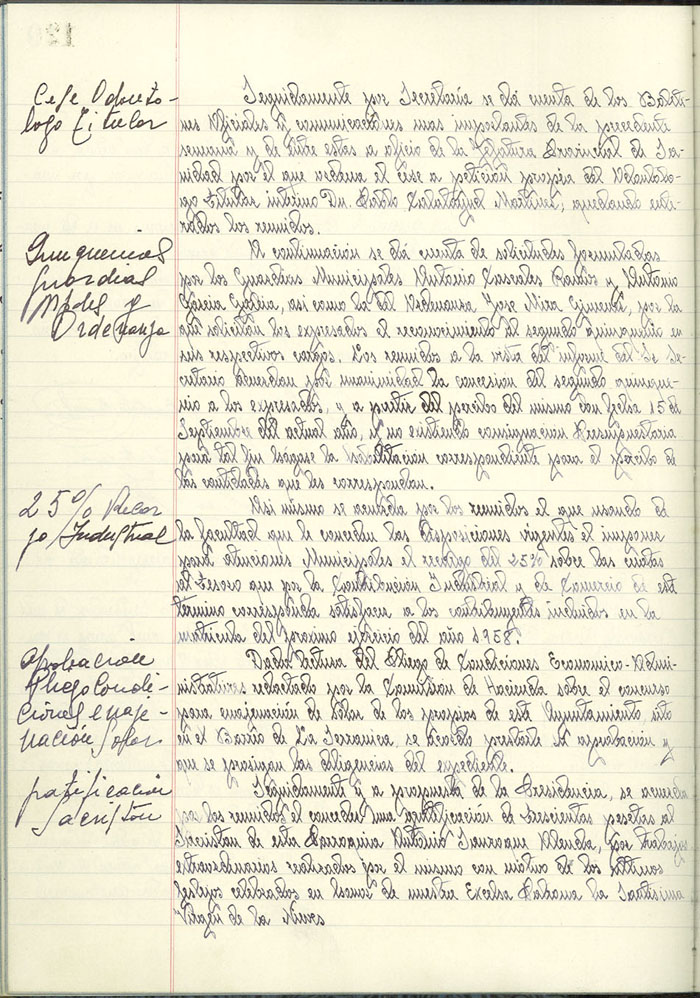 120
Cese Odontó-
logo Titular
Seguidamente por Secretaría se dá cuenta de los Boleti-
nes Oficiales y comunicaciones mas importantes de la precedente
semana y de entre estas a oficio de la Jefatura Provincial de Sa-
nidad por el que ordena el cese a petición propia del Odontólo-
go titular interino Dn. Pablo Calatayud Martínez, quedando ente-
rados los reunidos.
Quinquenios
guardias
Mples y
Ordenanza
A continuación se dá cuenta de solicitudes formuladas
por los Guardias Municipales Antonio Cascales Ramos y Antonio
Garcia Galdia, asi como la del Ordenanza Jose Mira Gimenez, por la
que solicitan los expresados el reconocimiento del segundo quinquenio en
sus respectivos cargos. Los reunidos a la vista del informe del Sr Se-
cretario acuerdan por unanimidad la concesion del segundo quinque-
nio a los expresados, y a partir del percibo del mismo con fecha 15 de
Septiembre del actual año, y no existiendo consignacion Presupuestaria
para tal fin hágase la habilitación correspondiente para el percibo de
las cantidades que les correspondan.
25% Recar
go Industrial
Asi mismo se acuerda por los reunidos el que usando de
la facultad que le conceden las disposiciones vigentes el imponer
para atenciones Municipales el recargo del 25% sobre las cuotas
del Tesoro que por la Contribución Industrial y de Comercio de este
término corresponda satisfacer a los contribuyentes incluidos en la
matricula del proximo ejercicio del año 1958.
Aprobación
Pliego Condi-
ciones enaje-
nación Solar
Dada lectura del Pliego de Condiciones Economico-Admi-
nistativas redactado por la Comision de Hacienda sobre el concurso
para enajenación de solar de los propios de este Ayuntamiento, sito
en el Barrio de La Serranica, se acordo prestarle su aprobación y
que se prosigan las diligencias del expediente.
gratificación
Sacristan
Seguidamente y a propuesta de la Presidencia, se acuerda
por los reunidos el conceder una gratificación de trescientas pesetas al
Sacristan de esta Parroquia Antonio Almodia, por trabajos
extraordinarios realizados por el mismo con motivo de los ultimos
festejos celebrados en honor de nuestra Excelsa Patrona la Santisima
Virgen de las Nieves